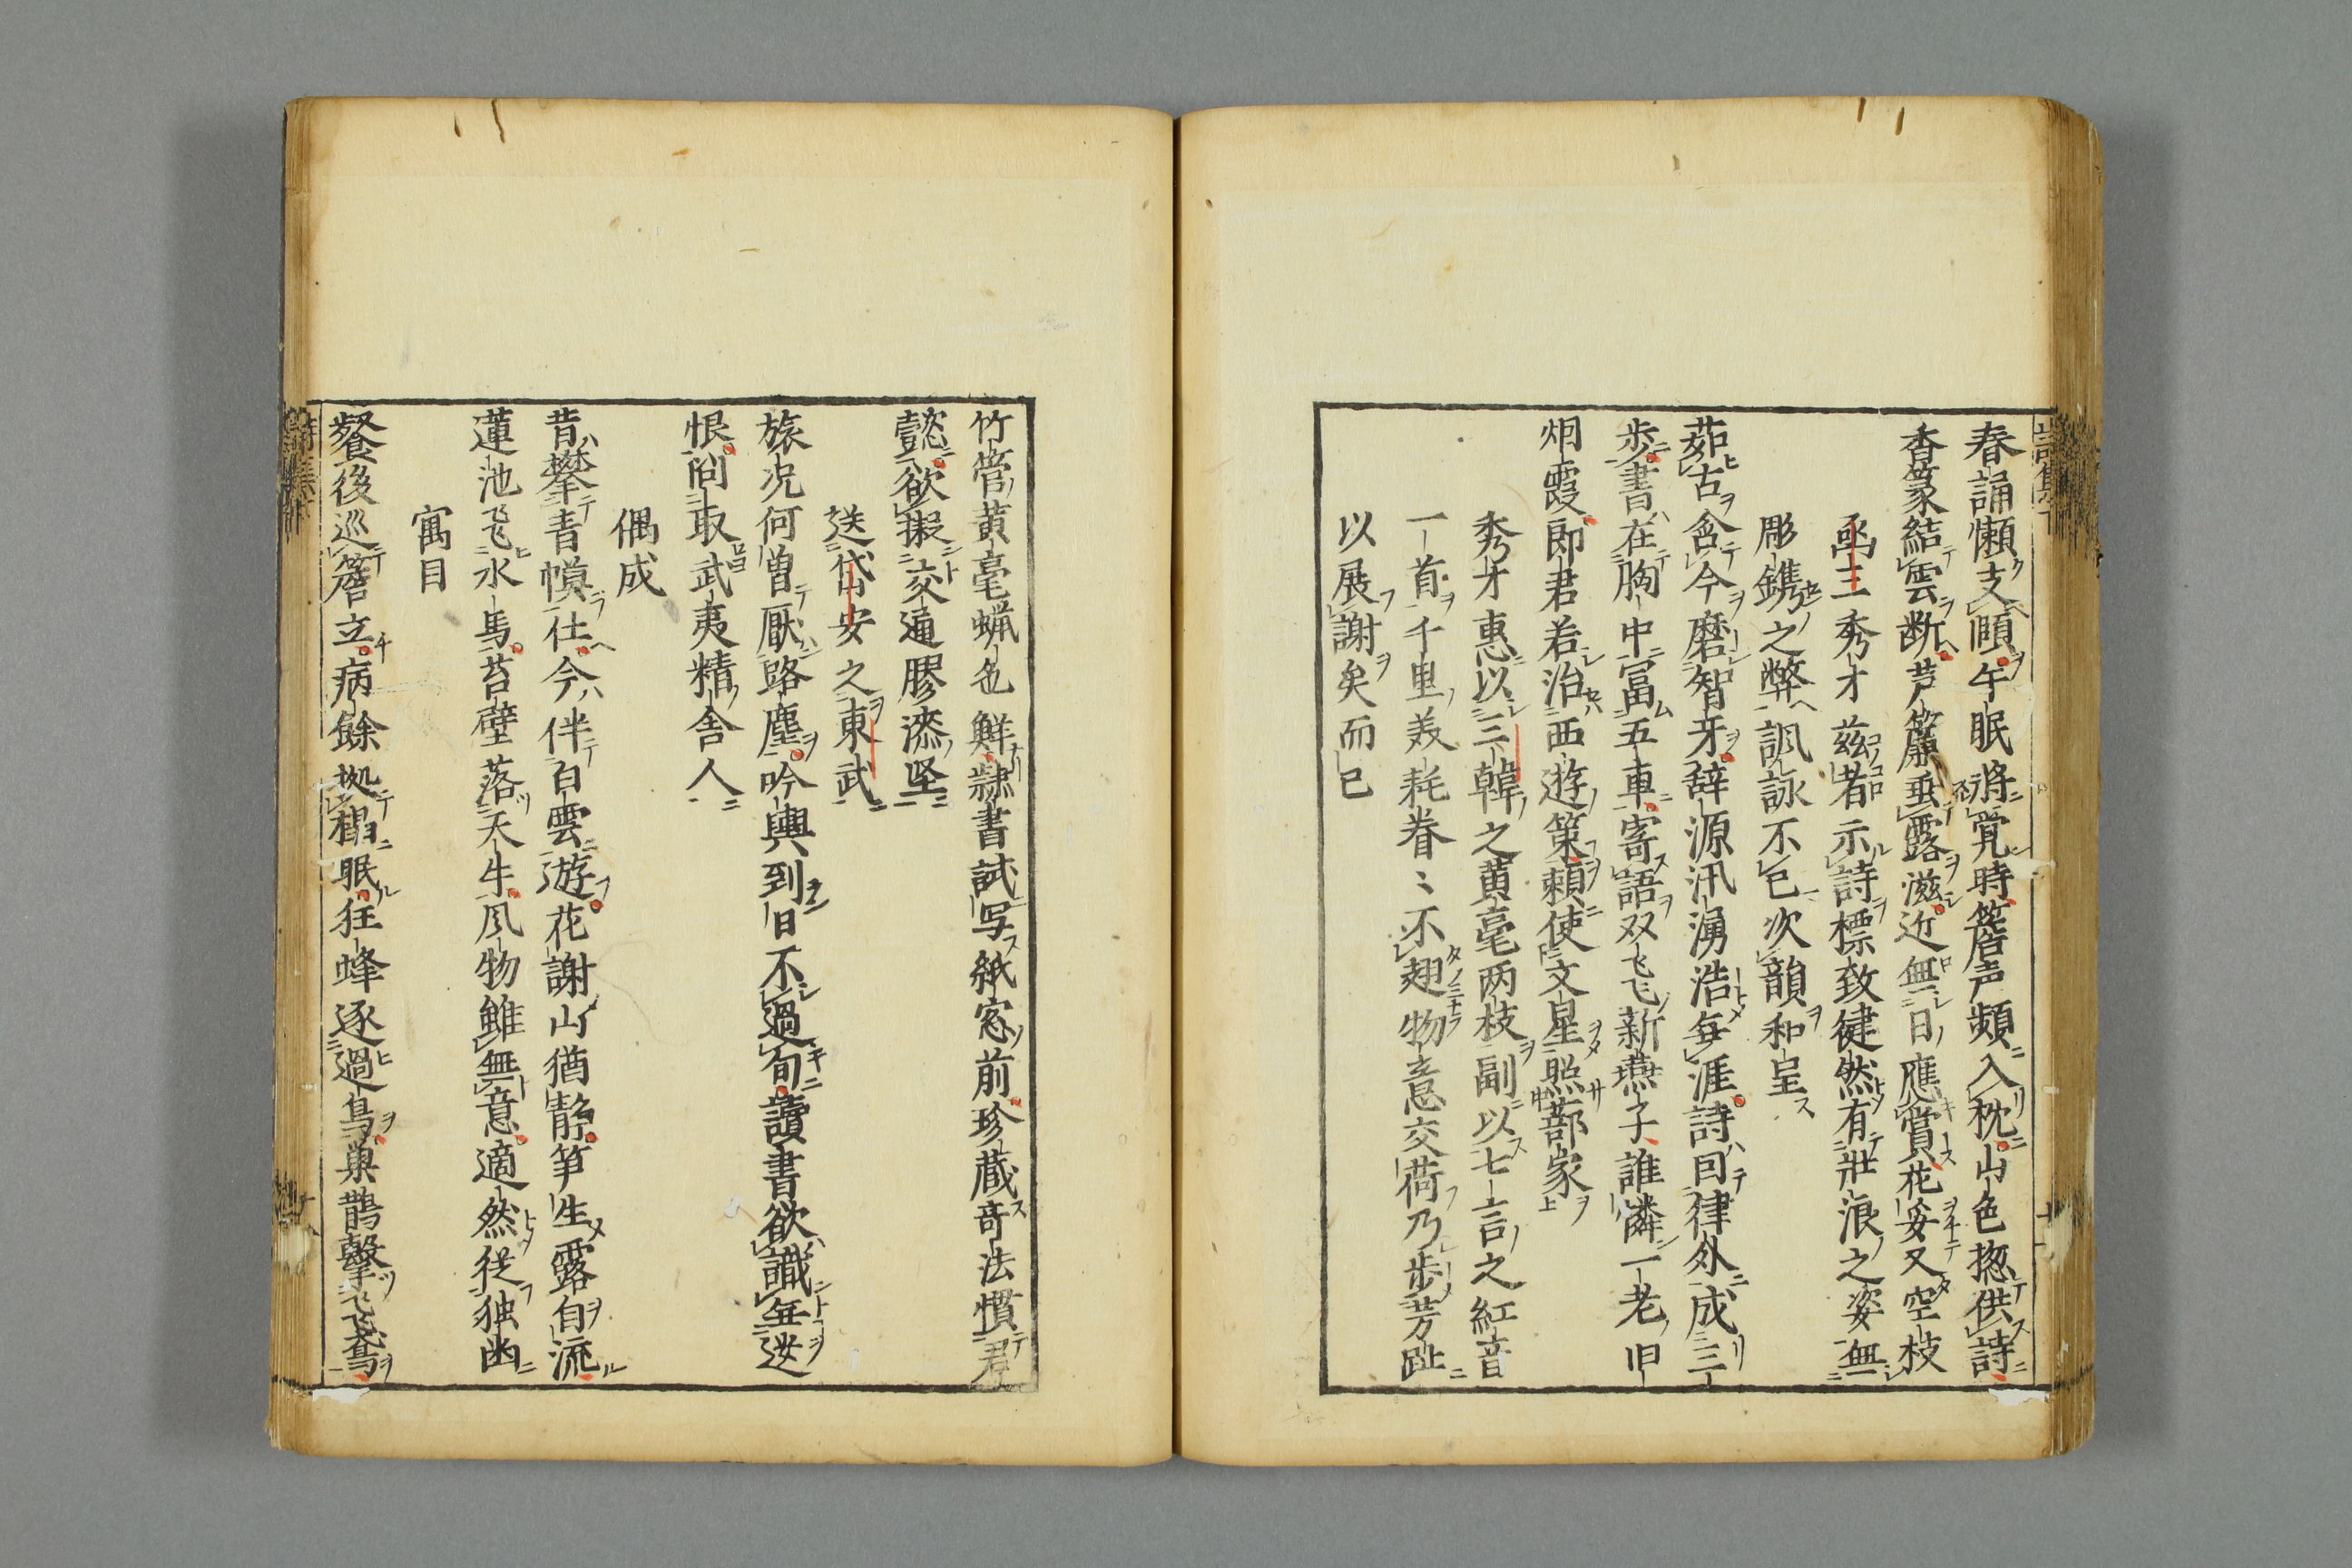 春誦懶支頤午眠將覚時簷声頻入枕山色揔供詩
香篆結雲断芦簾垂露滋近無日應賞花妥又空枝
函三秀才茲者示詩標致健然有壯浪之姿無
彫鐫之弊諷詠不已次韻和呈
茹古含今磨智牙辞源汛湧浩無涯詩回律外成三
歩書在胸中冨五車寄語双飞新燕子誰憐一老旧
烟霞郎君若治西遊策頼使文星照蔀家
秀才惠以三韓之黄毫两枝副以七言之紅音
一首千里羙耗眷〻不翅物意交荷乃歩芳趾
以展謝矣而已
竹管黄毫蝋色鮮隷書試写紙窓前珍蔵奇法慣君
懿欲擬交通膠漆坚
送岱安之東武
旅况何曽厭路塵吟輿到日不過旬讀書欲識無逆
恨問取武夷精舎人
偶成
昔攀青幙仕今伴百雲遊花謝山猶靜笋生露自流
蓮池飞水馬苔壁落天牛風物雖無意適然従独幽
寓目
餐後巡簷立病餘拠榻眠狂蜂逐過鳥巣鵲擊飞鳶